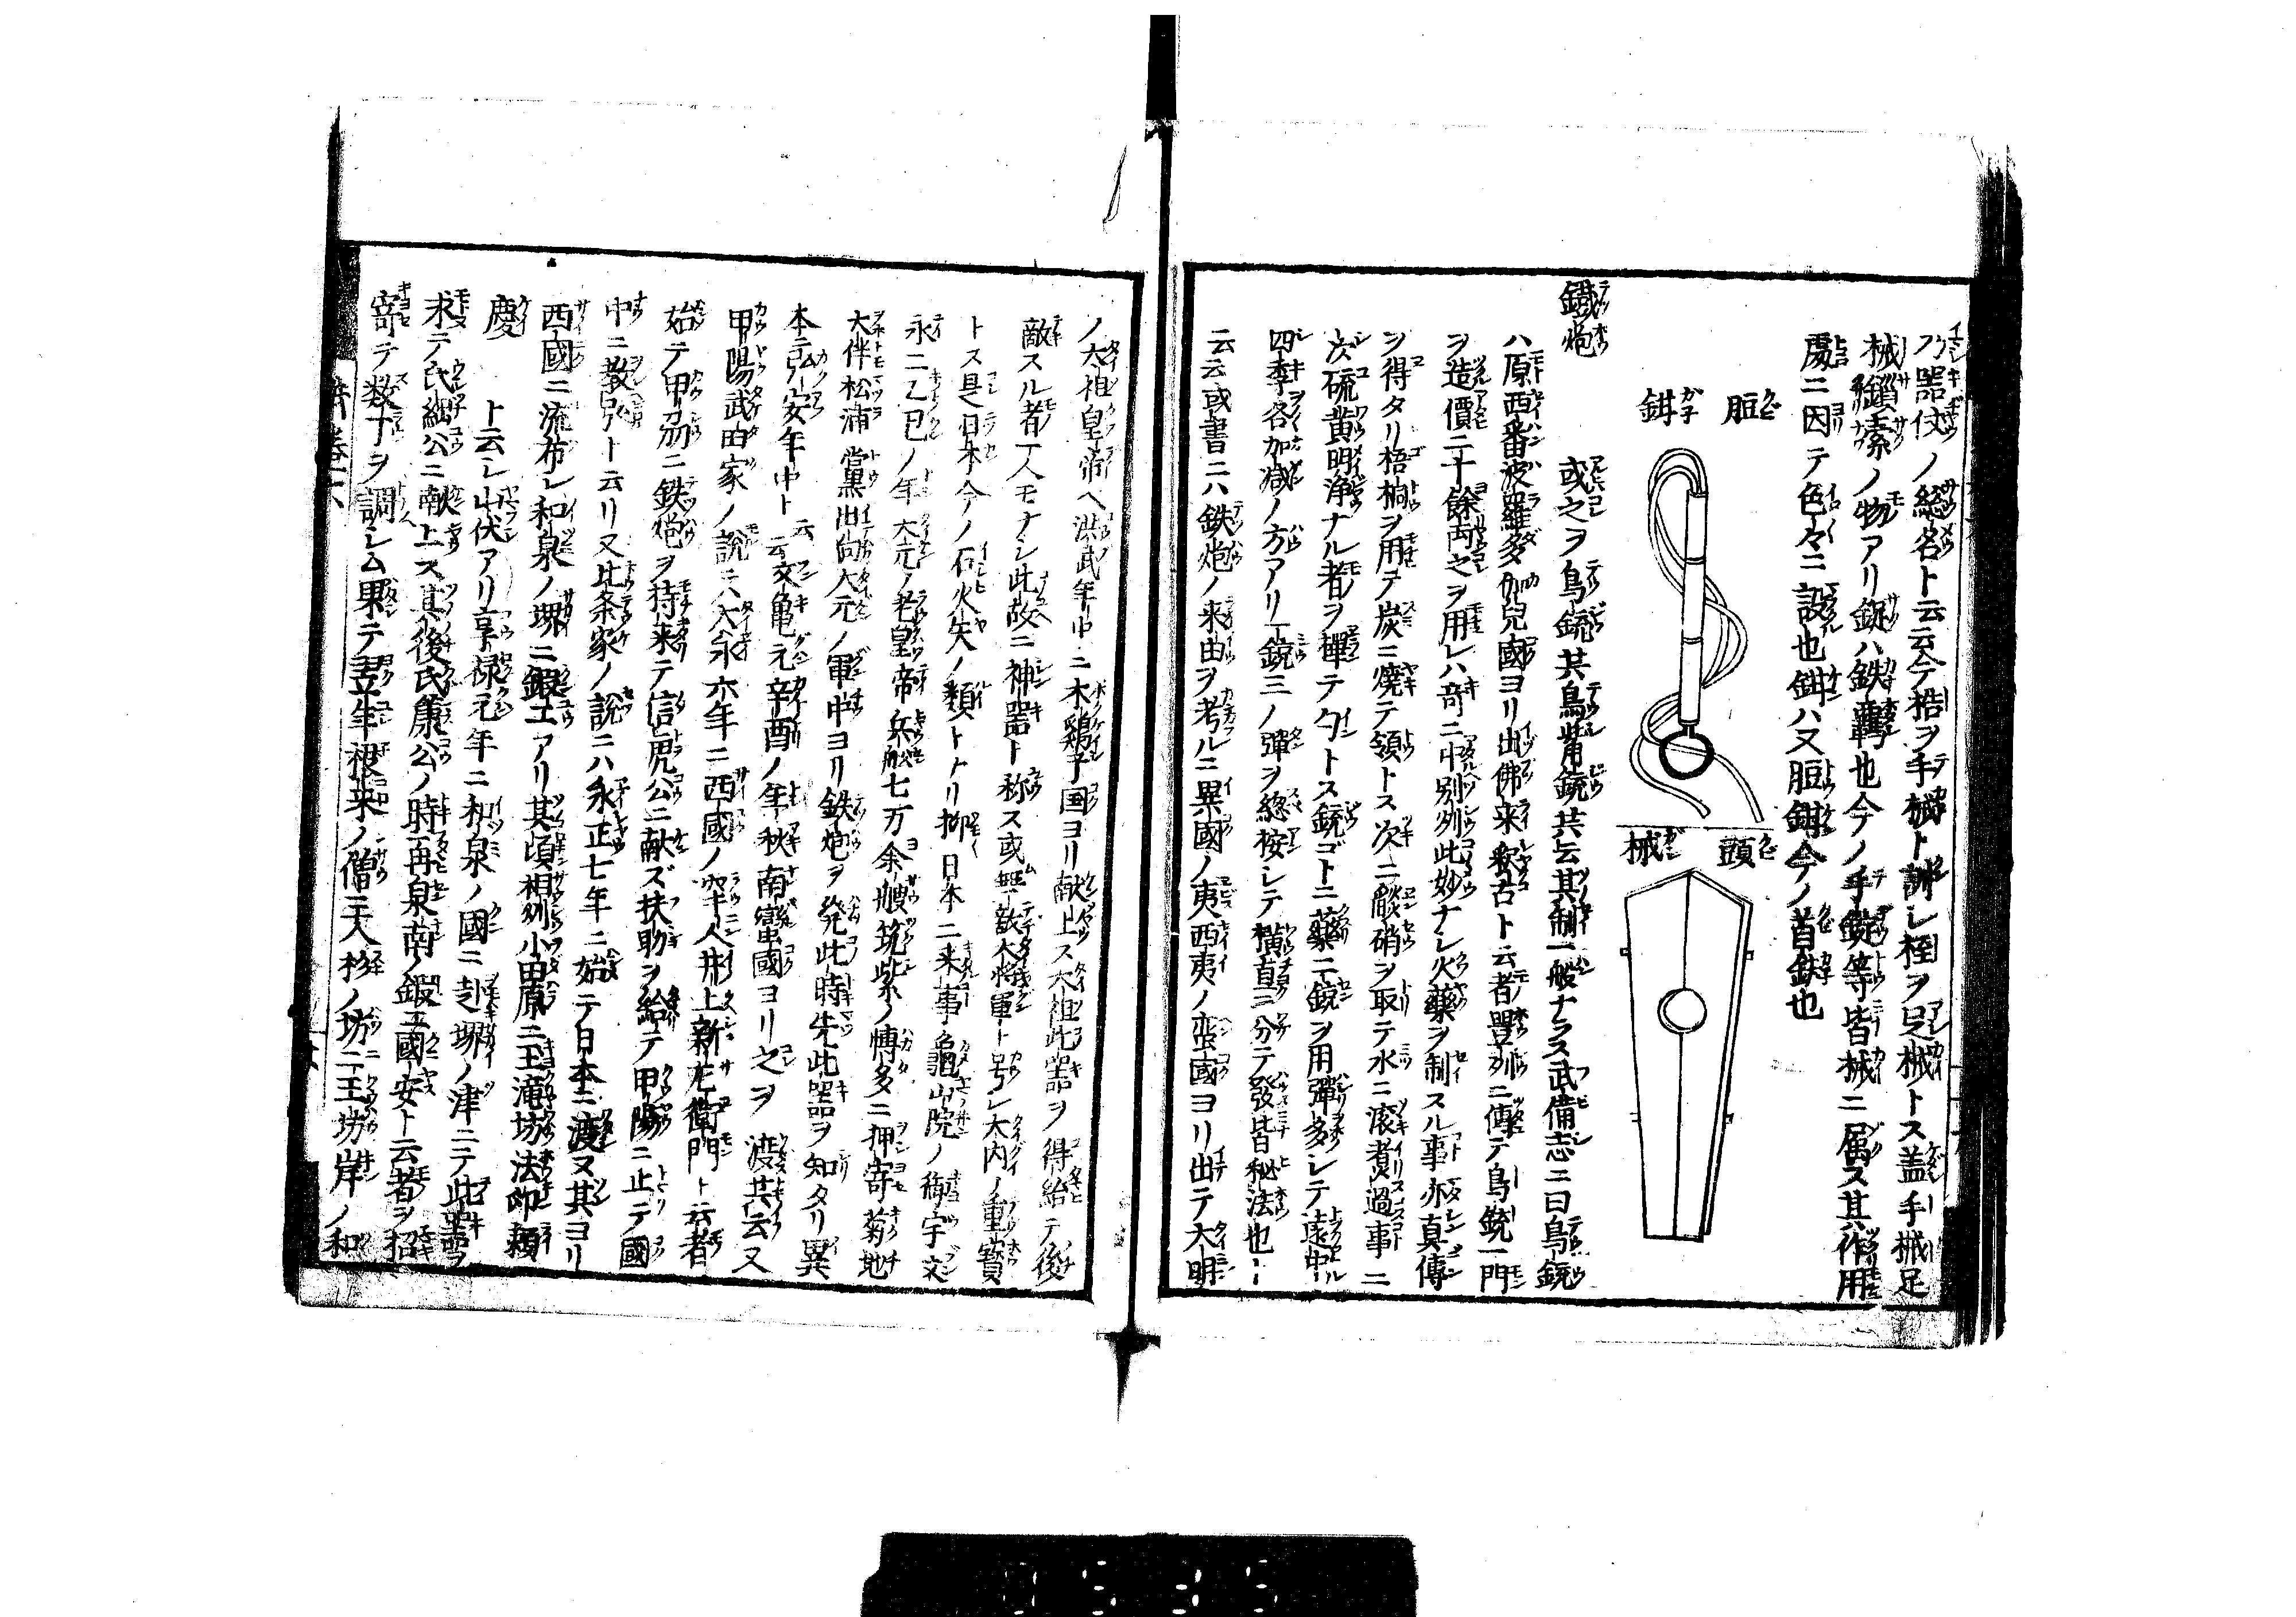 フ器仗ノ総名ト云云今梏ヲ手械ト訓シ桎ヲ足械トス蓋手械足
械鎻索ノ物アリ錠ハ鉄轡也今ノ手錠等皆械ニ属ス其作用
處ニ因テ色々ニ設也鉗ハ又脰鉗今ノ首鉄也
脰鉗
頭械
鐵炮
或之ヲ鳥銃共鳥觜銃共云其制一般ナラス武備志ニ曰鳥銃
ハ原西番波羅多伽兒國ヨリ出佛来釈古ト云者豊州ニ傳テ鳥銃一門
ヲ造價二十餘両之ヲ用レハ奇ニ中別列此妙ナシ火藥ヲ制スル事亦真傳
ヲ得タリ梧桐ヲ用テ炭ニ焼テ領トス次ニ燄硝ヲ取テ水ニ滚煮過事二
次硫黄明浄ナル者ヲ揮テトス銃ゴトニ藥二銭ヲ用彈多シテ遠中
四季各加减ノ方アリ一銃三ノ彈ヲ總桉シテ横直ニ分テ發皆秘法也
云云或書ニ八鉄炮ノ来由ヲ考ルニ異國ノ夷西夷ノ蛮國ヨリ出テ大明
ノ大祖皇帝ヘ洪武年中ニ木鷄子国ヨリ献上ス大祖此器ヲ得給テ後
敵スル者一人モナシ此故ニ神器ト称ス或無敵大将軍ト号シ大内ノ重寳
トス是日本今ノ石火矢ノ類トトリ抑日本ニ来事龜山院ノ御宇文
永二乙巳ノ年大元ノ老皇帝兵船七万余艘筑紫ノ博多ニ押寄菊地
大伴松浦黨出向大元ノ軍中ヨリ鉄炮ヲ発此時先此器ヲ知タリ異
本ニ弘安年中ト云云文亀元辛酉ノ年秋南蠻國ヨリ之ヲ渡共云又
甲陽武田家ノ説ニ大永六年ニ西國ノ牢人井上新左衛門ト云者
始テ甲刕ニ鉄炮ヲ持来テ信虎公ニ献ズ扶助ヲ給テ甲陽ニ止テ國
中ニ教弘ト云リ又北条家ノ説ニハ永正七年ニ始テ日本ニ渡又其ヨリ
西國ニ流布シ和泉ノ堺ニ鍛工アリ其頃相州小田原ニ玉滝坊法印頼
慶ト云シ山伏アリ享禄元年ニ和泉ノ國ニ赴堺ノ津ニテ此器ヲ
求テ氏綱公ニ献上ス其後氏康公ノ時再泉南ノ鍛工國安ト云者ヲ招
寄テ数丁ヲ調シム果テ翌年根来ノ僧三人杉ノ坊二王坊岸ノ和